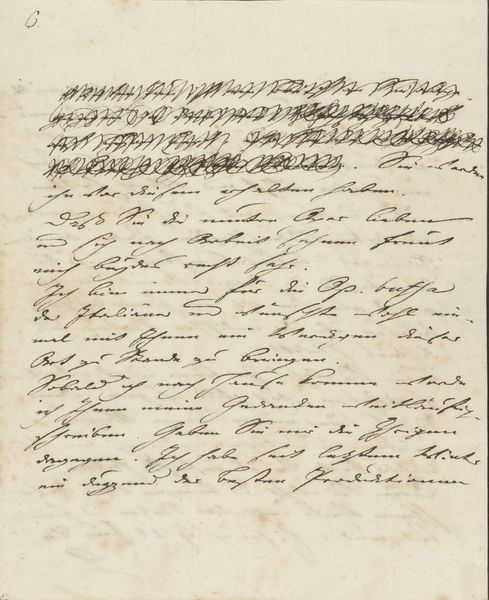 6.
. Sie werden
ihn vor diesem erhalten haben.
Daß Sie die muntre Oper lieben
und sich nach Arbeit sehnen freut
mich beydes recht sehr.
Ich bin immer für die Op. buffa
der Italiäner und wünschte wohl ein-
mal mit Ihnen ein Werckgen dieser
Art zu Stande zu bringen.
Sobald ich nach Hause komme werde
ich Ihnen meine Gedancken weitläufig
schreiben. Geben Sie mir die Ihrigen
dagegen. Ich habe seit letztem Winter
ein duzzend der besten Produktionen